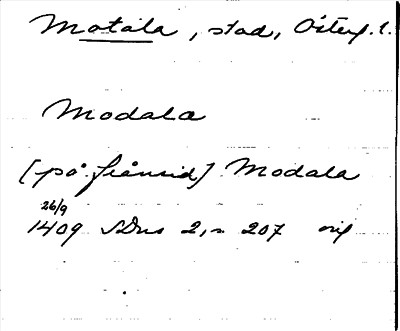 Motala, stad, Österg. l.
Modala
[på frånsid] Modala
26/9
1409 SDns 2, n 207 orig